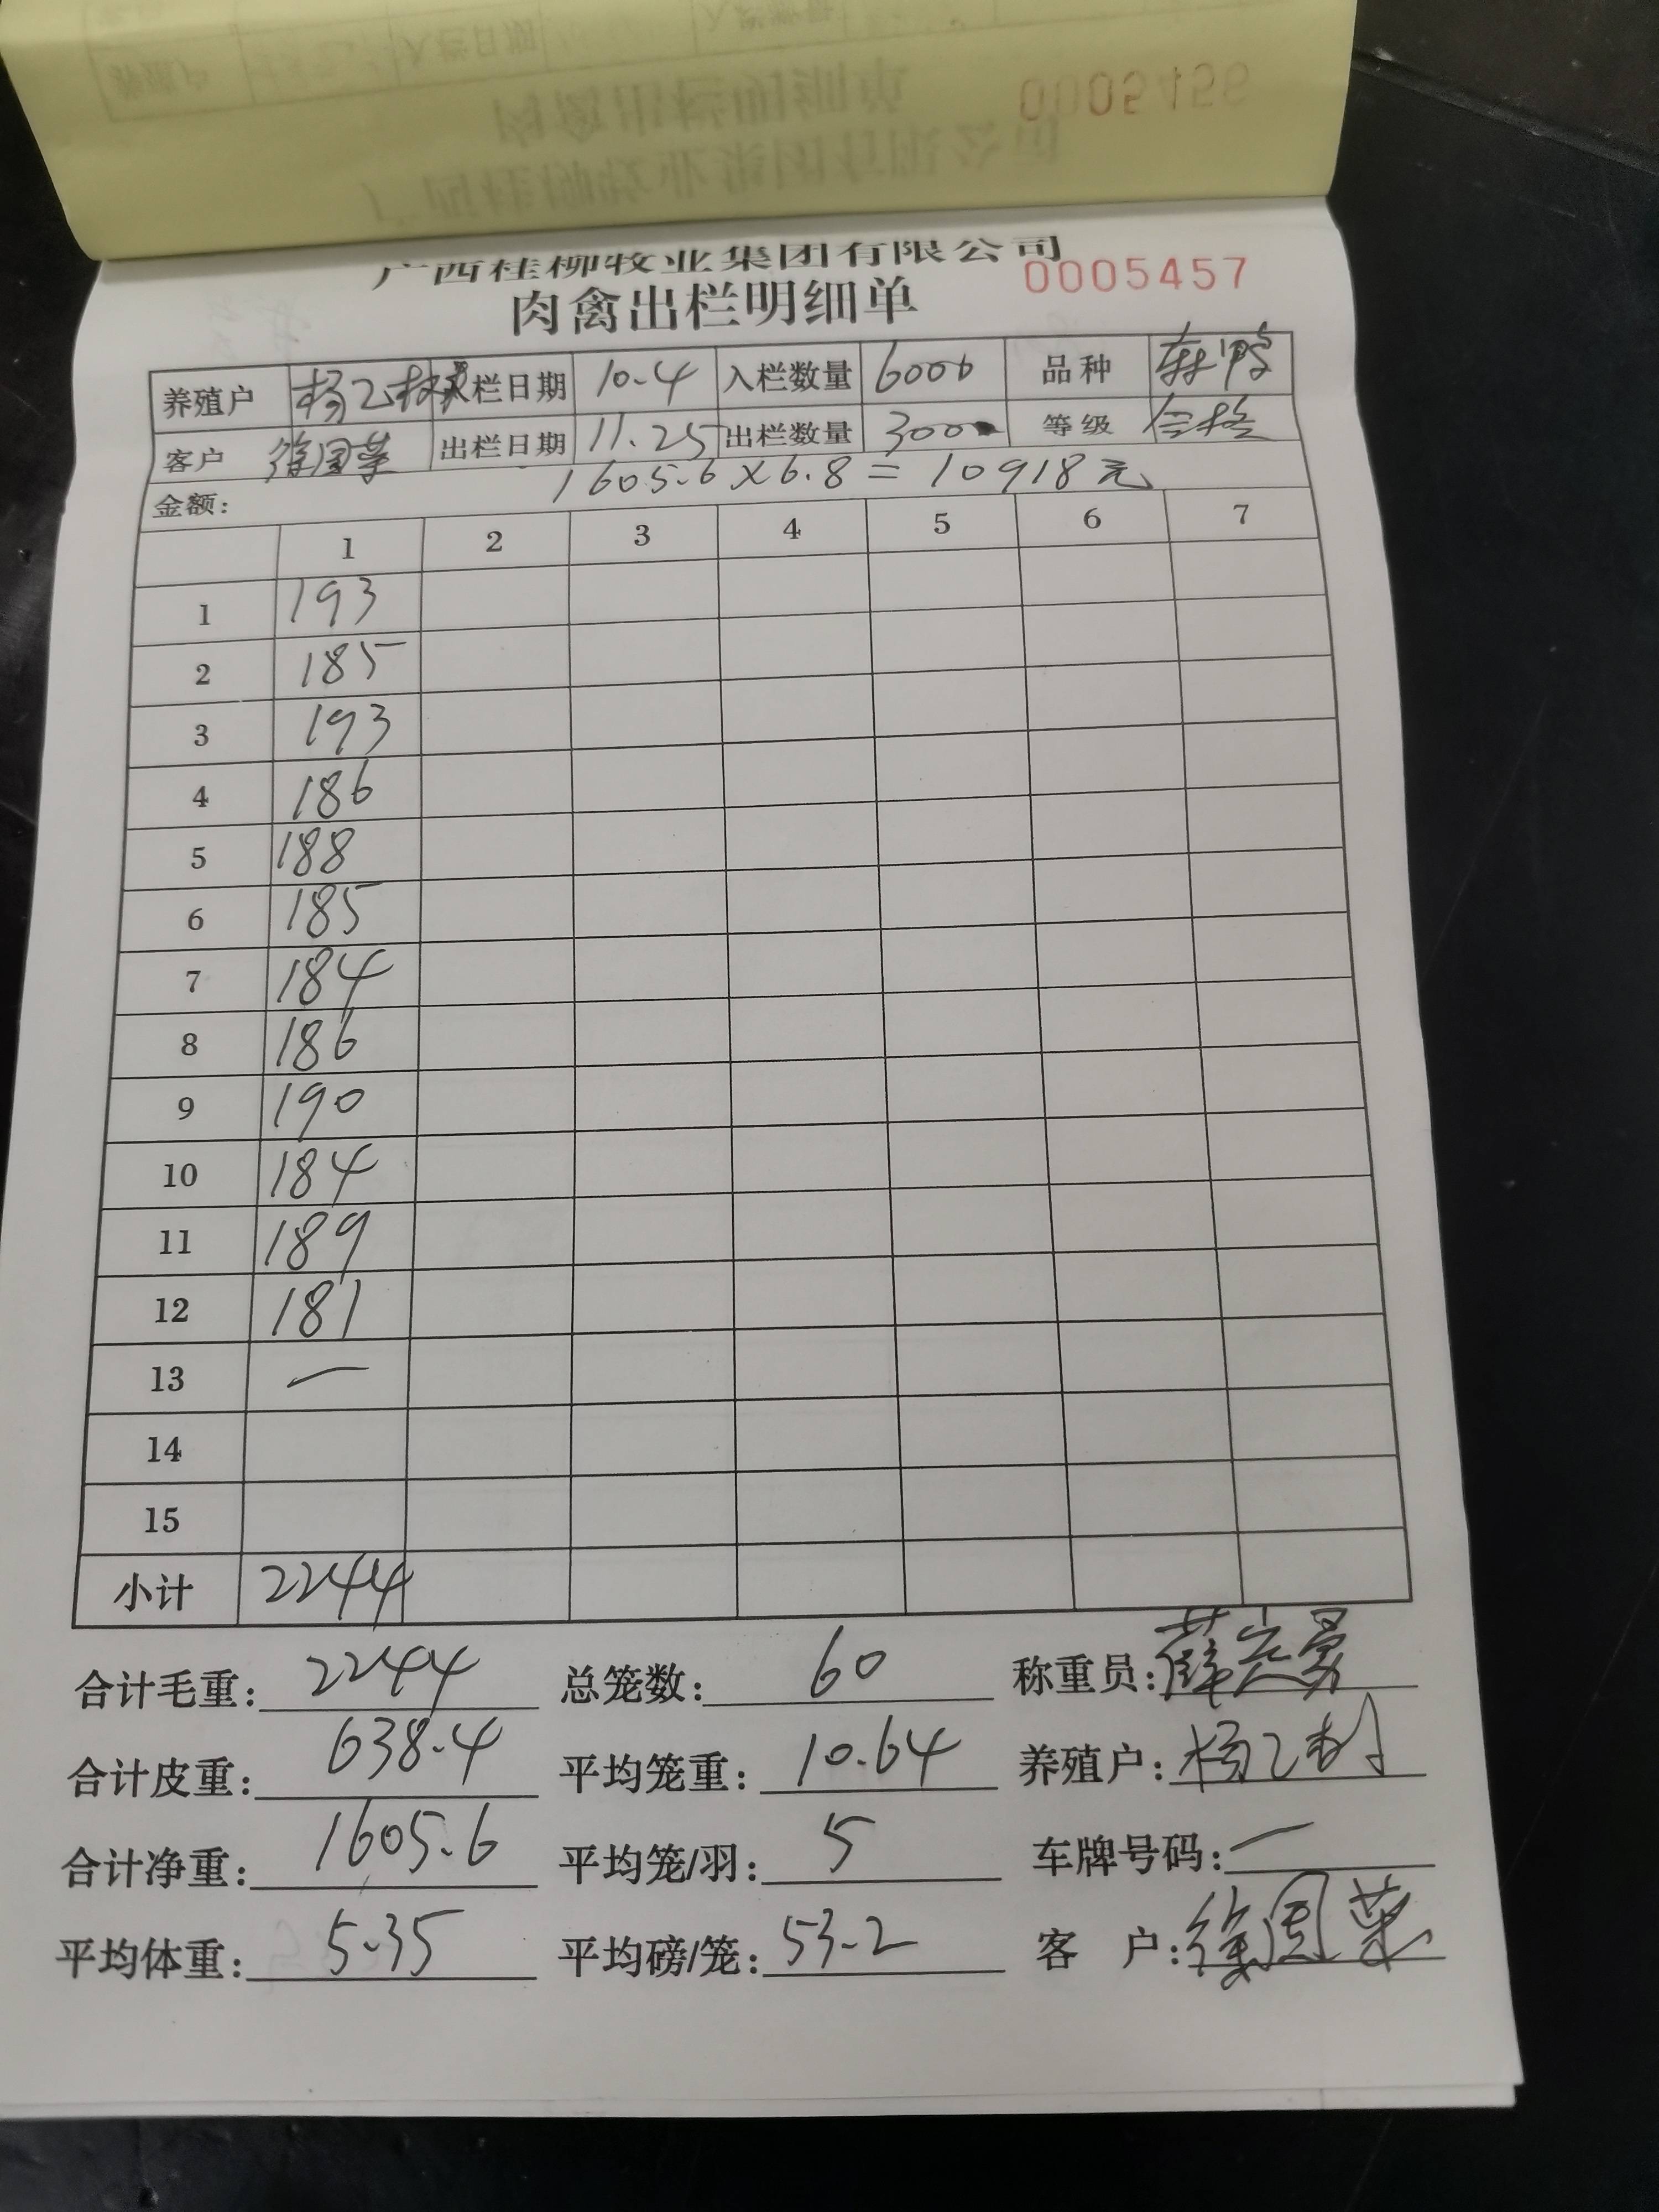 广西桂柳牧业集团有限公司
0005457
肉禽出栏明细单
养殖户 杨乙树 入栏日期 10.4 入栏数量 6000 品种
客户 徐国荣 出栏日期 11.25 出栏数量 300 等级 合格
金额: 1605.6×6.8=10918元
1 2 3 4 5 6 7
1 193
2 185
3 193
4 186
5 188
6 185
7 184
8 186
9 190
10 184
11 189
12 181
13 一
14
15
小计 2244
合计毛重: 2244 总笼数: 60 称重员:
合计皮重: 638.4 平均笼重: 10.64 养殖户: 杨乙树
合计净重: 1605.6 平均笼/羽: 5 车牌号码: 一
平均体重: 5.35 平均磅/笼: 53.2 客户: 徐国荣